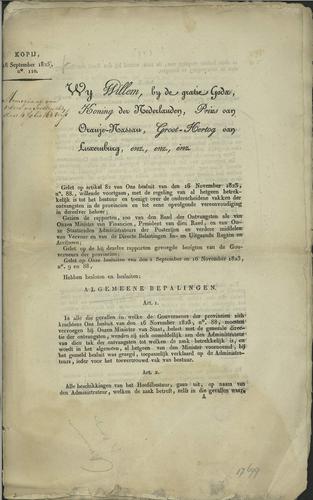 KOPIJ.
18 September 1825,
n°. 110.
Wy Willem, by de gratie Gods,
Koning der Nederlanden, Prins van
Oranje-Nassau, Groot-Hertog van
Luxemburg, enz., enz., enz.
Gelet op artikel 82 van Ons besluit van den 16 November 1823,
n°. 88, willende voortgaan, met de regeling van al hetgeen betrek-
kelijk is tot het bestuur en toezigt over de onderscheidene vakken der
ontvangsten in de provincien en tot eene opvolgende vereenvoudiging
in derzelver beheer;
Gezien de rapporten, van den Raad der Ontvangsten als van
Onzen Minister van Financien, President van dien Raad, en van On-
ze Staatsraden Administrateurs der Posterijen en verdere middelen
van Vervoer en van de Directe Belastingen In- en Uitgaande Regten en
Accijnsen;
Gelet op de bij dezelve rapporten gevoegde berigten van de Gou-
verneurs der provincien;
Gelet op Onze besluiten van den 2 September en 16 November 1823,
n°. 9 en 88,
Hebben besloten en besluiten:
ALGEMEENE BEPALINGEN.
Art. 1.
In alle de gevallen in welke de Gouverneurs der provincien zich
krachtens Ons besluit van den 16 November 1823, n°. 88, moesten
vervoegen bij Onzen Minister van Staat, belast met de generale direc-
tie der ontvangsten, wenden zij zich onmiddelijk aan den Administrateur
van dien tak der ontvangsten tot welken de zaak betrekkelijk is, en
wordt in het algemeen, al hetgeen van den Minister voornoemd, bij
het gemeld besluit was gezegd, toepasselijk verklaard op de Administra-
teurs, ieder voor het toevertrouwd vak van bestuur.
Art. 2.
Alle beschikkingen van het Hoofdbestuur, gaan uit, op naam van
den Administrateur, welken de zaak betreft, zelfs in die gevallen waar
17699